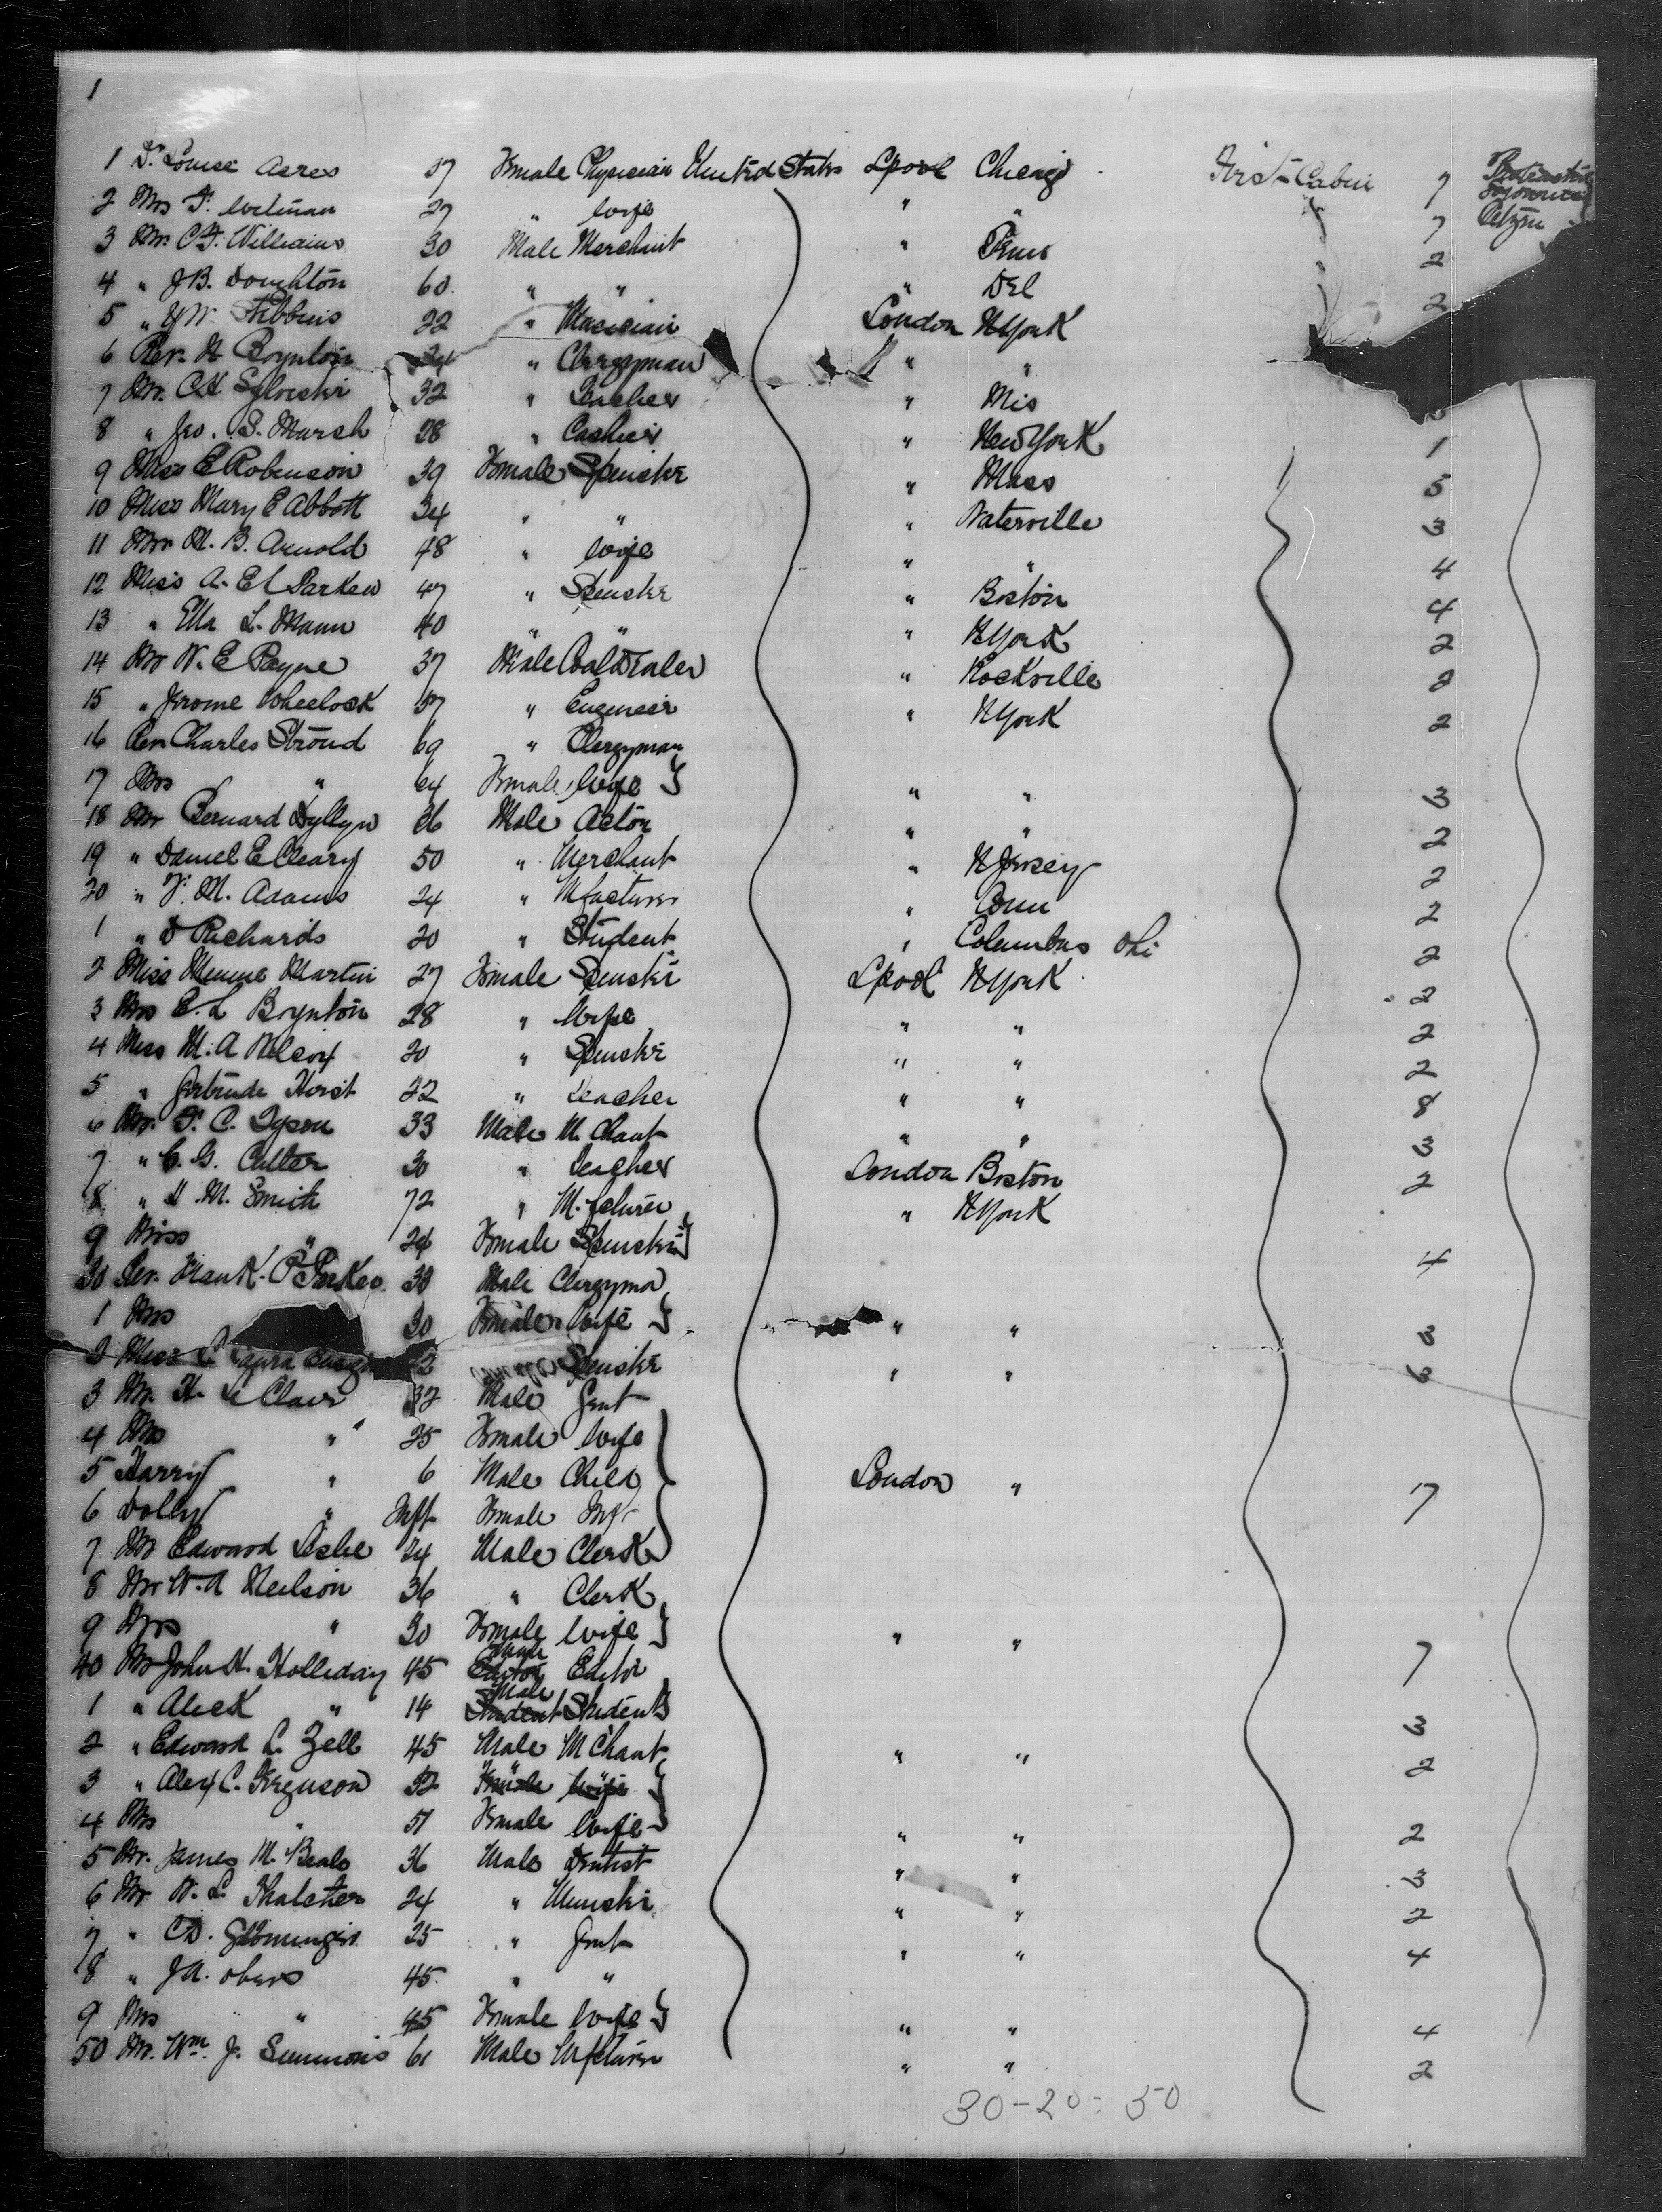 1
1 Dr. Louise Acres 37 Female Physician United States Lpool Chicago First Cabin 7
2 Mrs F. 27 " Wife " " 7 Citizen
3 Mr. C F. Williams 30 Male Merchant " Penn 2
4 " J B. Doughton 60 " " " Del 2
5 " 22 " Musician London N York
6 Rev. N Boynton 34 " Clergyman " "
7 Mr. C H Sylvester 32 " Teacher " Mis
8 " Jno. S. Marsh 28 " Cashier " New York 1
9 Miss E Robinson 39 Female Spinster " Mass 5
10 Miss Mary E Abbott 34 " " " Waterville 3
11 Mrs M. B. Arnold 48 " Wife " " 4
12 Miss A. E Parker 47 " Spinster " Boston 4
13 " Ella L. Mann 40 " " " N York 2
14 Mr W. E Payne 37 Male Coal Dealer " Rockville 2
15 " Jerome Wheelock 57 " Engineer " N York 2
16 Rev Charles Stroud 69 " Clergyman
17 Mrs " 64 Female Wife } " " 3
18 Mr Bernard Dyllyn 36 Male Actor " " 2
19 " Daniel E Cleary 50 " Merchant " N Jersey 2
20 " F. M. Adams 24 " Mfacturer " Conn 2
1 " D Richards 20 " Student " Columbus Ohi 2
2 Miss Minnie Martin 27 Female Spinster Lpool N York 2
3 Mrs E. L Boynton 28 " Wife " " 2
4 Miss M. A 20 " Spinster " " 2
5 " Gertrude Hirst 22 " Teacher " " 8
6 Mr. F. C. Tyson 33 Male M. Chant " " 3
7 " C. G. Cutler 30 " Teacher London Boston 2
8 " H. M. Smith 72 " M. facturer " N York
9 Miss " 24 Female Spinster } 4
30 Rev. Frank. P Parker 38 Male Clergyman
1 Mrs 30 Female Wife } " " 3
2 Miss Laura Spinster " " 3
3 Mr. H. Le Clair 32 Male Gent
4 Mrs " 25 Female Wife
5 Harry " 6 Male Child London " 17
6 Dolly " Inft Female Inft
7 Mr Edward Leslie 24 Male Clerk
8 Mr W. A Neilson 36 " Clerk
9 Mrs " 30 Female Wife } " " 7
40 Mr John H. Holliday 45 Male Editor Editor
1 " Aleck " 14 Male Student Student } 3
2 " Edward L. Zell 45 Male M Chant " " 2
3 " Alex C. Ferguson 52
4 Mrs " 51 Female Wife } " " 2
5 Mr. James M. Beals 36 Male Dentist " " 3
6 Mr W. L. Thatcher 24 " Minister " " 2
7 " C D. Gloninger 25 " Gent " " 4
8 " J A. 45 " "
9 Mrs " 45 Female Wife } " " 4
50 Mr. Wm. J. Simmons 61 Male Mfcturer " " 2
30-20=50